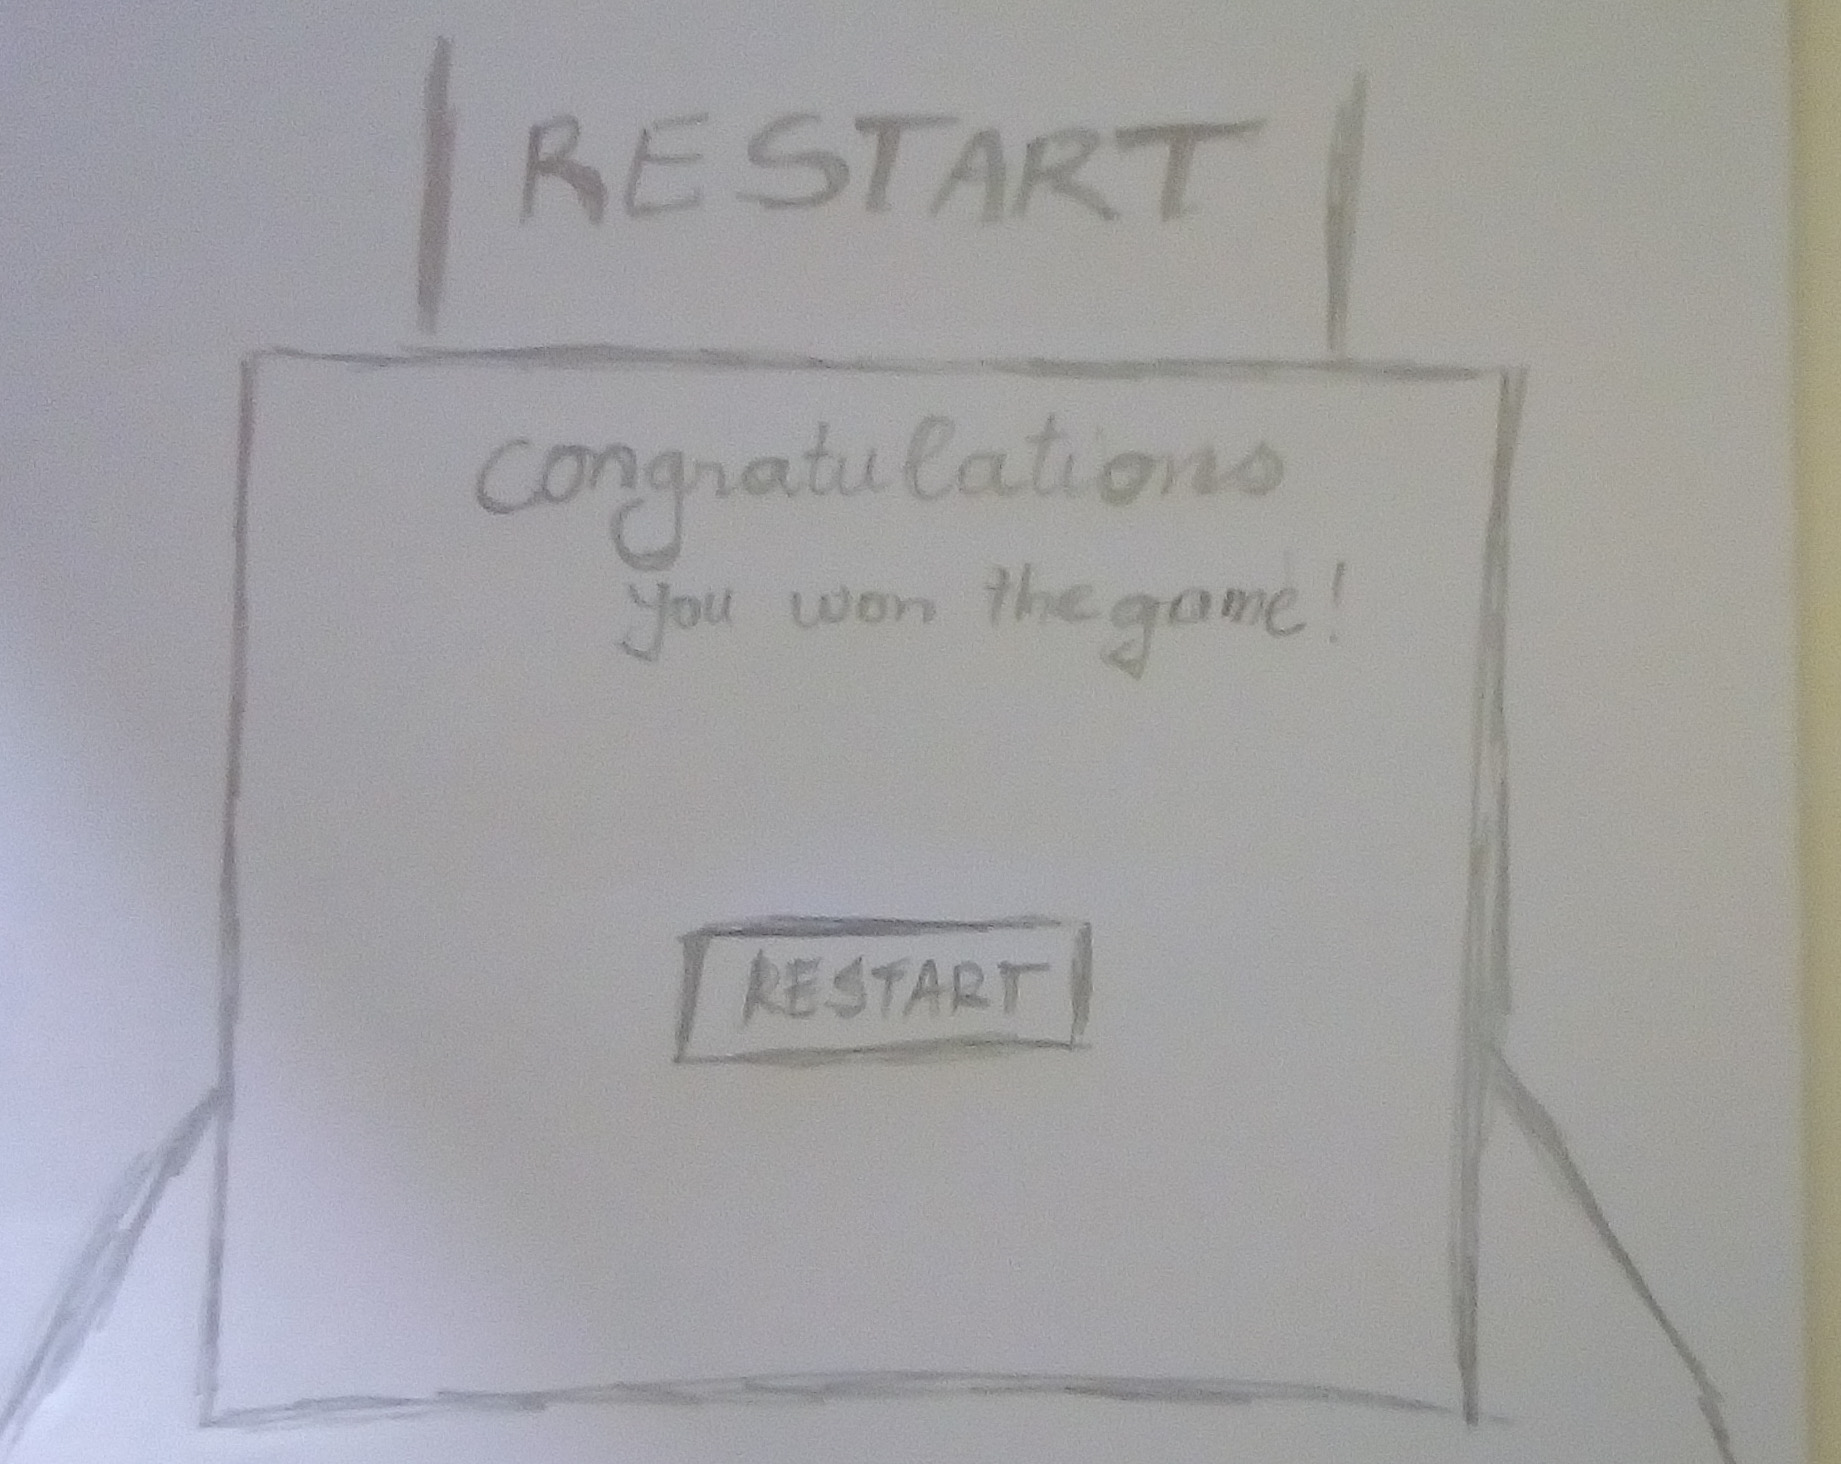 RESTART
congratulations
you won the game!
RESTART